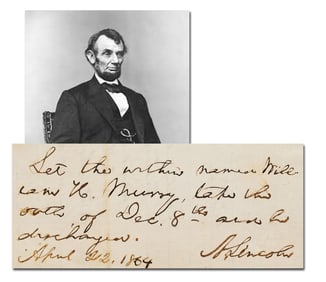 Let the within named Will-
iam H. Murry, take the
oath of Dec. 8th and be
discharged.
A. Lincoln
April 22. 1864